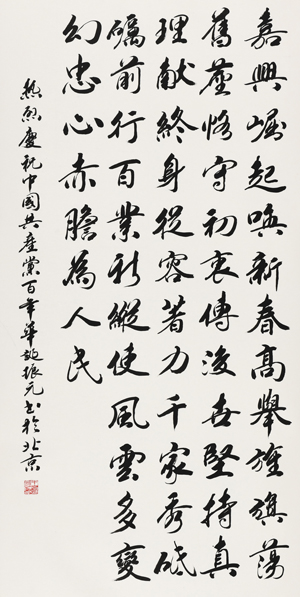 嘉興崛起喚新春高舉旌旗蕩
舊塵恪守初衷傳後世堅持真
理献終身從容着力千家秀砥
礪前行百業新縱使風雲多變
幻忠心赤膽為人民
熱烈慶祝中國共產黨百年華誕振元書於北京